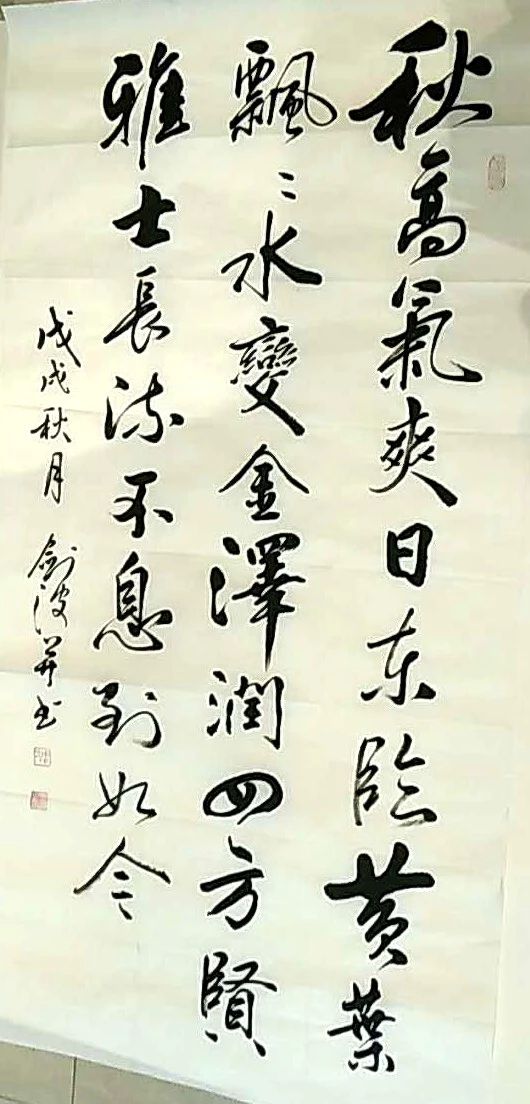 秋高氣爽日东臨黄葉
飄〻水變金澤潤四方賢
雅士長流不息到如今
戊戌秋月 劍波并书